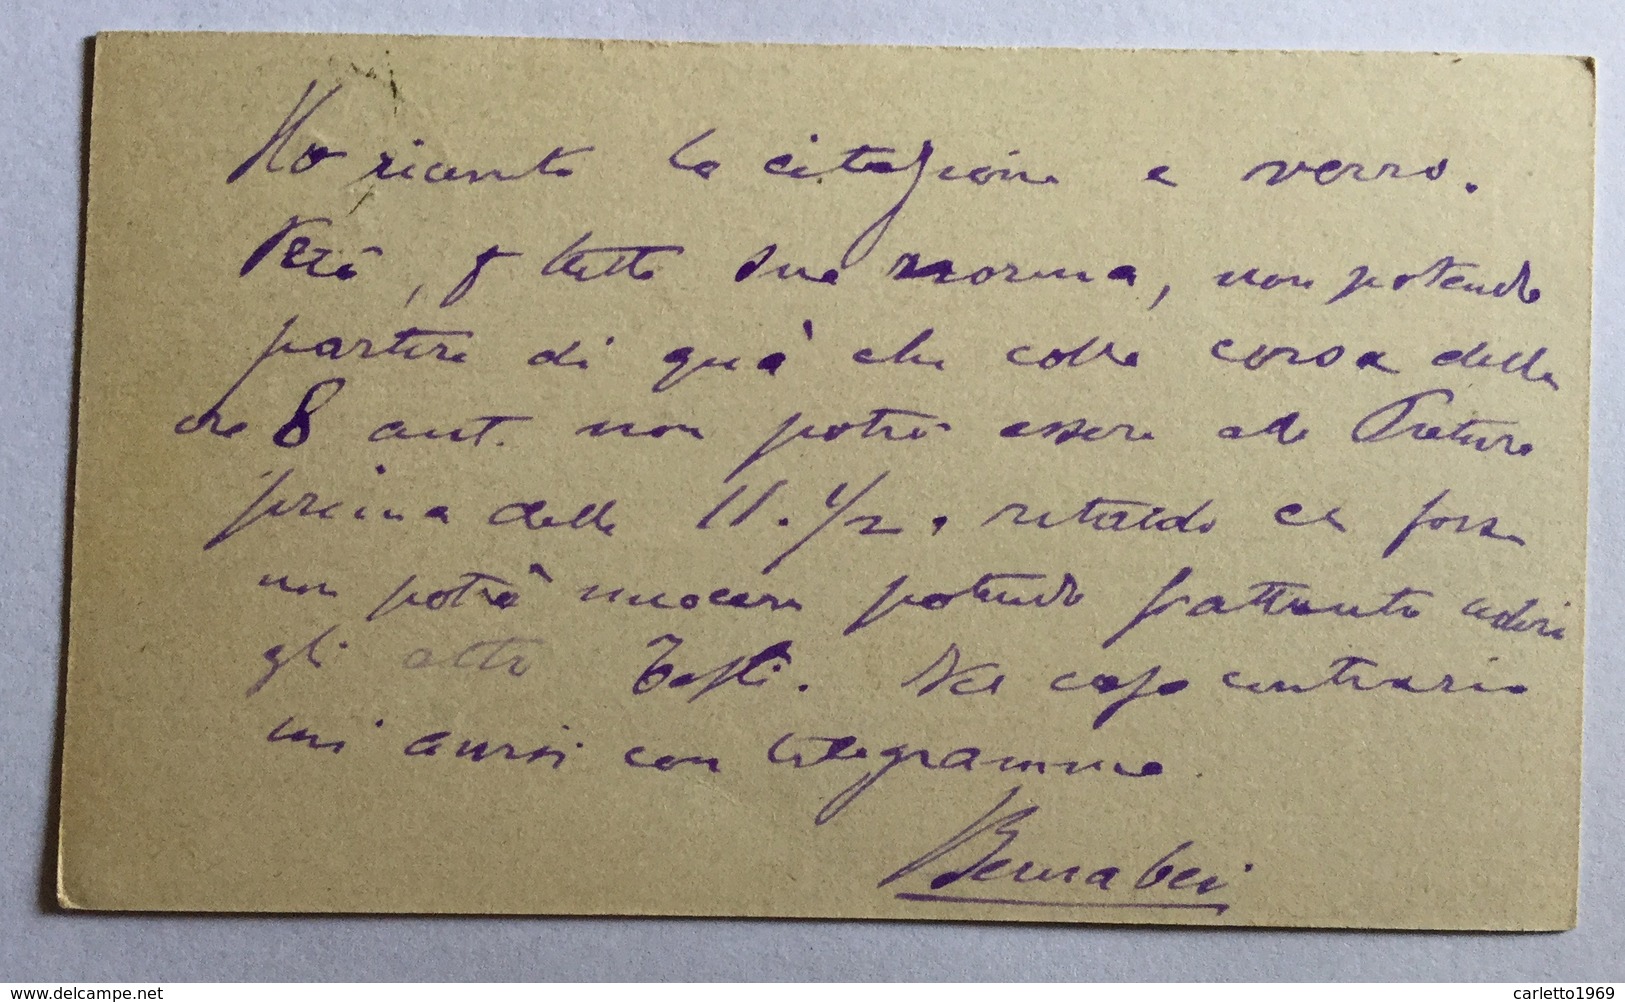 Ho ricevuto la citazione e verrò.
Però, p tutta sua norma, non potendo
partire di quà che colla corsa delle
ore 8 ant. non potrò essere alla Pretura
prima delle 11. 1/2. ritardo che forse
non potrà nuocere potendo frattanto udire
gli altri Testi. Nel caso contrario
mi avvisi con telegramma.
Bernabei
www.delcampe.net
carletto1969